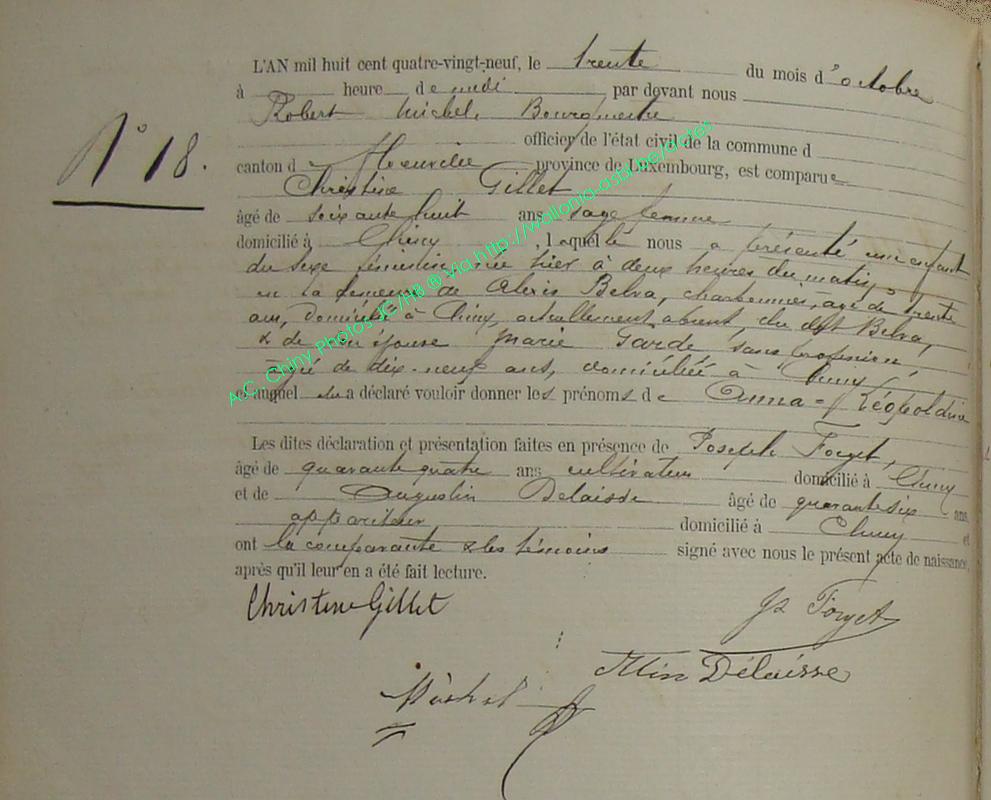 L'AN mil huit cent quatre-vingt-neuf, le trente du mois d'octobre
à heure de midi par devant nous
Robert Michel, Bourgmestre
officier de l'état civil de la commune d
canton de Florenville province de Luxembourg, est comparue
N° 18.
Christine Gillet
âgé de soixante huit ans sage femme
domicilié à Chiny, laquelle nous a présenté un enfant
du sexe féminin, né hier à deux heures du matin
en la demeure de Alexis Belva, charbonnier, agé de trente
ans, domicilié à Chiny, actuellement absent, du dit Belva,
& de son épouse Marie Garde sans profession,
agée de dix-neuf ans, domiciliée à Chiny
et auquel elle a déclaré vouloir donner les prénoms de Anna-Léopoldine
Les dites déclaration et présentation faites en présence de Joseph Forget,
âgé de quarante quatre ans cultivateur domicilié à Chiny
et de Augustin Delaisse âgé de quarante six ans,
appariteur domicilié à Chiny et
ont la comparante & les témoins signé avec nous le présent acte de naissance,
après qu'il leur en a été fait lecture.
Christine Gillet
Js Forget
Délaisse
Michel
A.C. Chiny Photos JE/HB ® via http://wallonia-asbl.be/actes